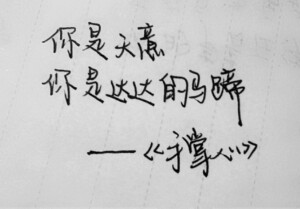 你是天意
你是达达的马蹄
——《手掌心》